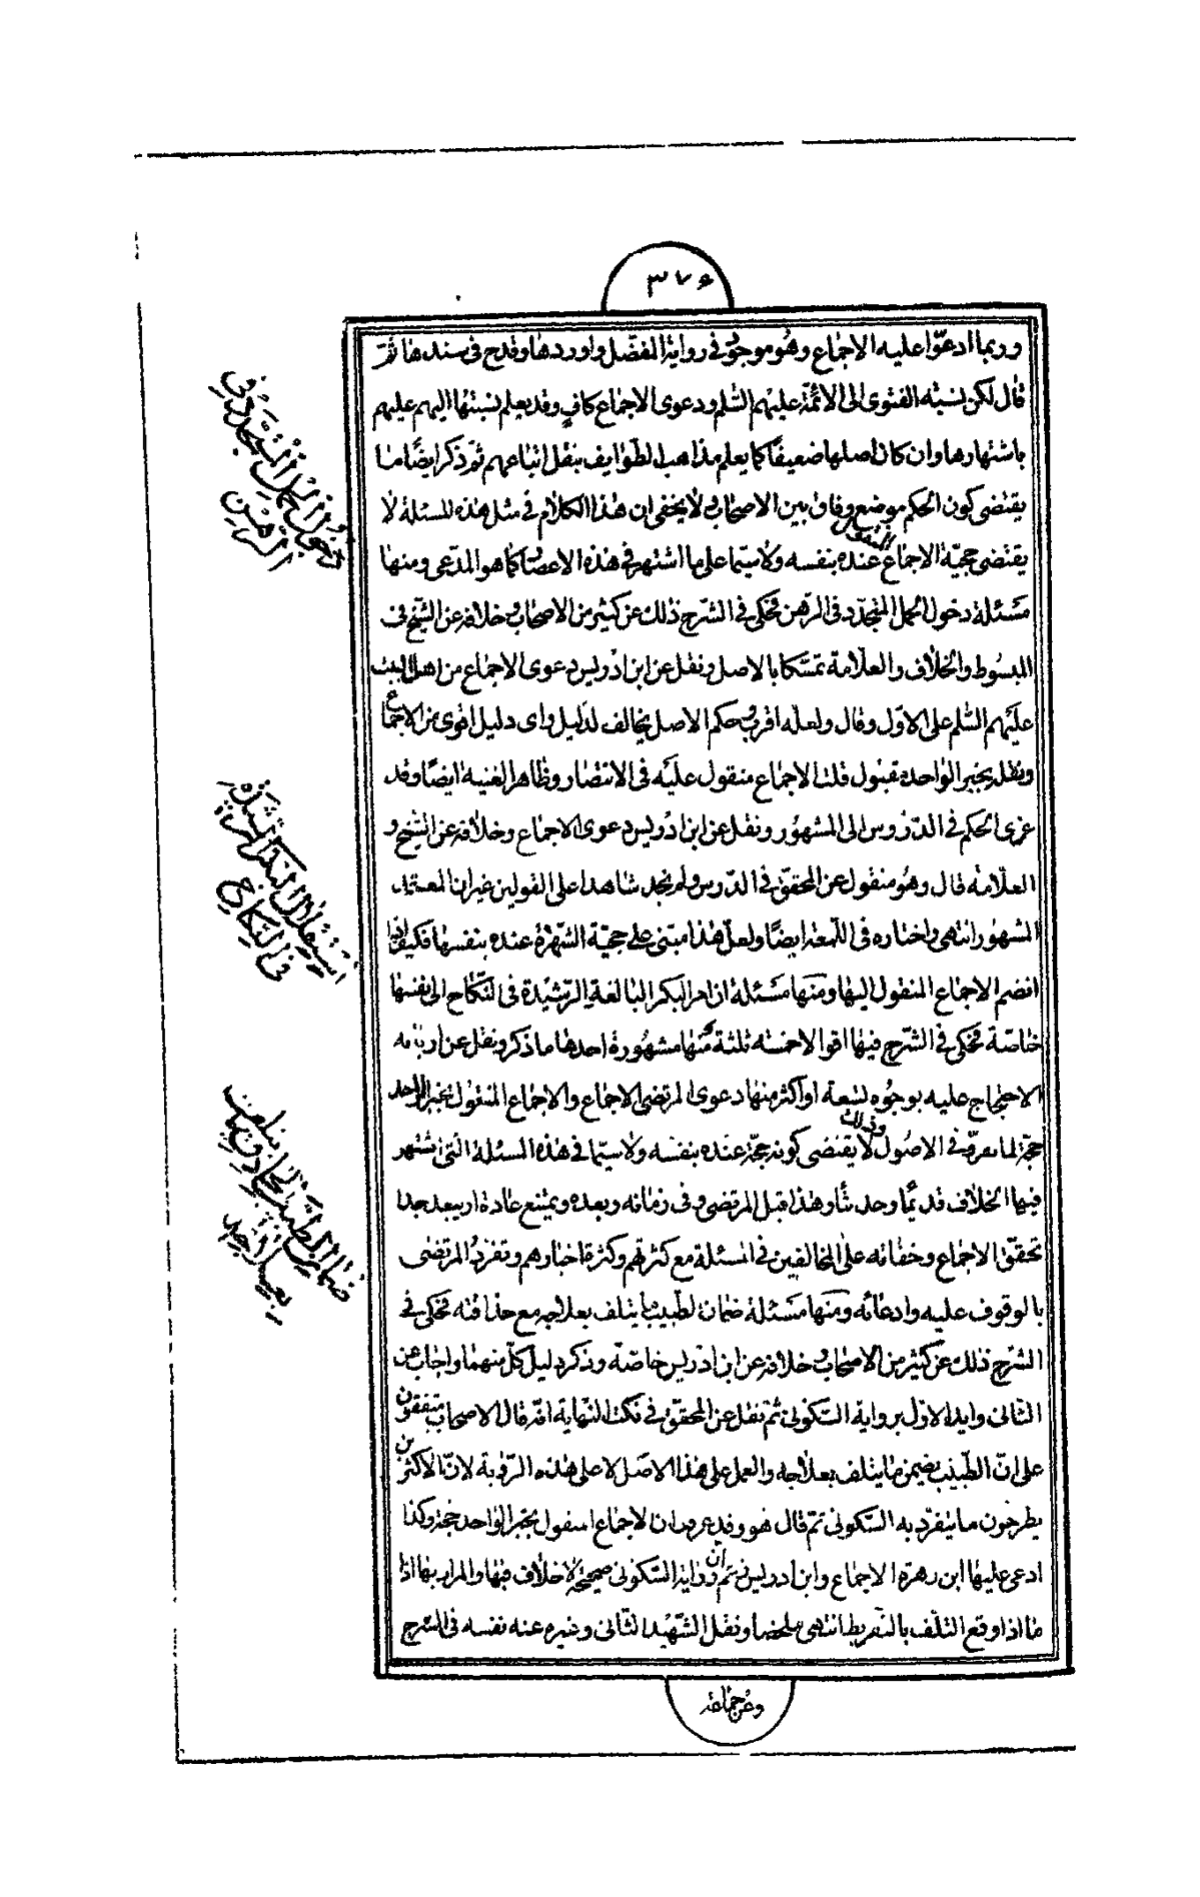 ٣٧۶
وربما ادعوا عليه الاجماع وهو موجود في رواية المفضل واوردها وقدح في سندها ثم
قال لكن نسبة الفتوى الى الائمة عليهم السلم ودعوى الاجماع كاف وقد يعلم نسبتها اليهم عليهم
باشتهارها وان كان اصلها ضعيفا كما يعلم مذاهب الطوايف بنقل اتباعهم ثم ذكر ايضا ما
يقتضى كون الحكم موضع وفاق بين الاصحاب ولا يخفى ان هذا الكلام في مثل هذه المسئلة لا
يقتضى حجية الاجماع المنقول عنده بنفسه ولا سيما على ما اشتهر في هذه الاعصار كما هو المدعى ومنها
مسئلة دخول الحمل المتجدد في الرهن فحكى في الشرح ذلك عن كثير من الاصحاب وخلافه عن الشيخ في
المبسوط والخلاف والعلامة تمسكا بالاصل ونقل عن ابن ادريس دعوى الاجماع من اهل البيت
عليهم السلم على الاول وقال ولعله اقرب وحكم الاصل يخالف لدليل واى دليل اقوى من الاجماع
ونقله بخبر الواحد مقبول قلت الاجماع منقول عليه في الانتصار وظاهر الغنية ايضا وقد
عزى الحكم في الدروس الى المشهور ونقل عن ابن ادريس دعوى الاجماع وخلافه عن الشيخ و
العلامة قال وهو منقول عن المحقق في الدرس ولم نجد شاهدا على القولين غير ان المعتمد
المشهور انتهى واختاره في اللمعة ايضا ولعل هذا مبتنى على حجية الشهرة عنده بنفسها فكيف اذا
انضم الاجماع المنقول اليها ومنها مسئلة ان امر البكر البالغة الرشيدة في النكاح الى نفسها
خاصة فحكى في الشرح فيها اقوالا خمسة ثلثة منها مشهورة احدها ما ذكر ونقل عن اربابه
الاحتجاج عليه بوجوه تسعة او اكثر منها دعوى المرتضى الاجماع والاجماع المنقول بخبر الواحد
حجة لما تعرف في الاصول وذلك لا يقتضى كونه حجة عنده بنفسه ولا سيما في هذه المسئلة التى اشتهر
فيها الخلاف قديما وحديثا وهذا قبل المرتضى وفى زمانه وبعده ويمتنع عادة او يبعد جدا
تحقق الاجماع وخفائه على المخالفين في المسئلة مع كثرتهم وكثرة اخبارهم وتفرد المرتضى
بالوقوف عليه وادعائه ومنها مسئلة ضمان الطبيب ما يتلف بعلاجه مع حذاقته فحكى في
الشرح ذلك عن كثير من الاصحاب وخلافه عن ابن ادريس خاصة وذكر دليل كل منهما واجاب عن
الثانى وايد الاول برواية السكونى ثم نقل عن المحقق في نكت النهاية انه قال الاصحاب متفقون
على ان الطبيب يضمن ما يتلف بعلاجه والعمل على هذا الاصل لا على هذه الرواية لان الاكثرين
يطرحون ما يتفرد به السكونى ثم قال هو وقد عرفت ان الاجماع المنقول بخبر الواحد حجة وكذا
ادعى عليها ابن زهرة الاجماع وابن ادريس زعم ان رواية السكونى صحيحة لا خلاف فيها والمراد بها اذا
ما اذا وقع التلف بالتفريط انتهى ملخصا ونقل الشهيد الثانى وغيره عنه نفسه في الشرح
وعن جماعة
دخول الحمل المتجدد في
الرهن
استقلال البكر الرشيدة
في النكاح
ضمان الطبيب الحاذق ما يتلف
بعلاجه